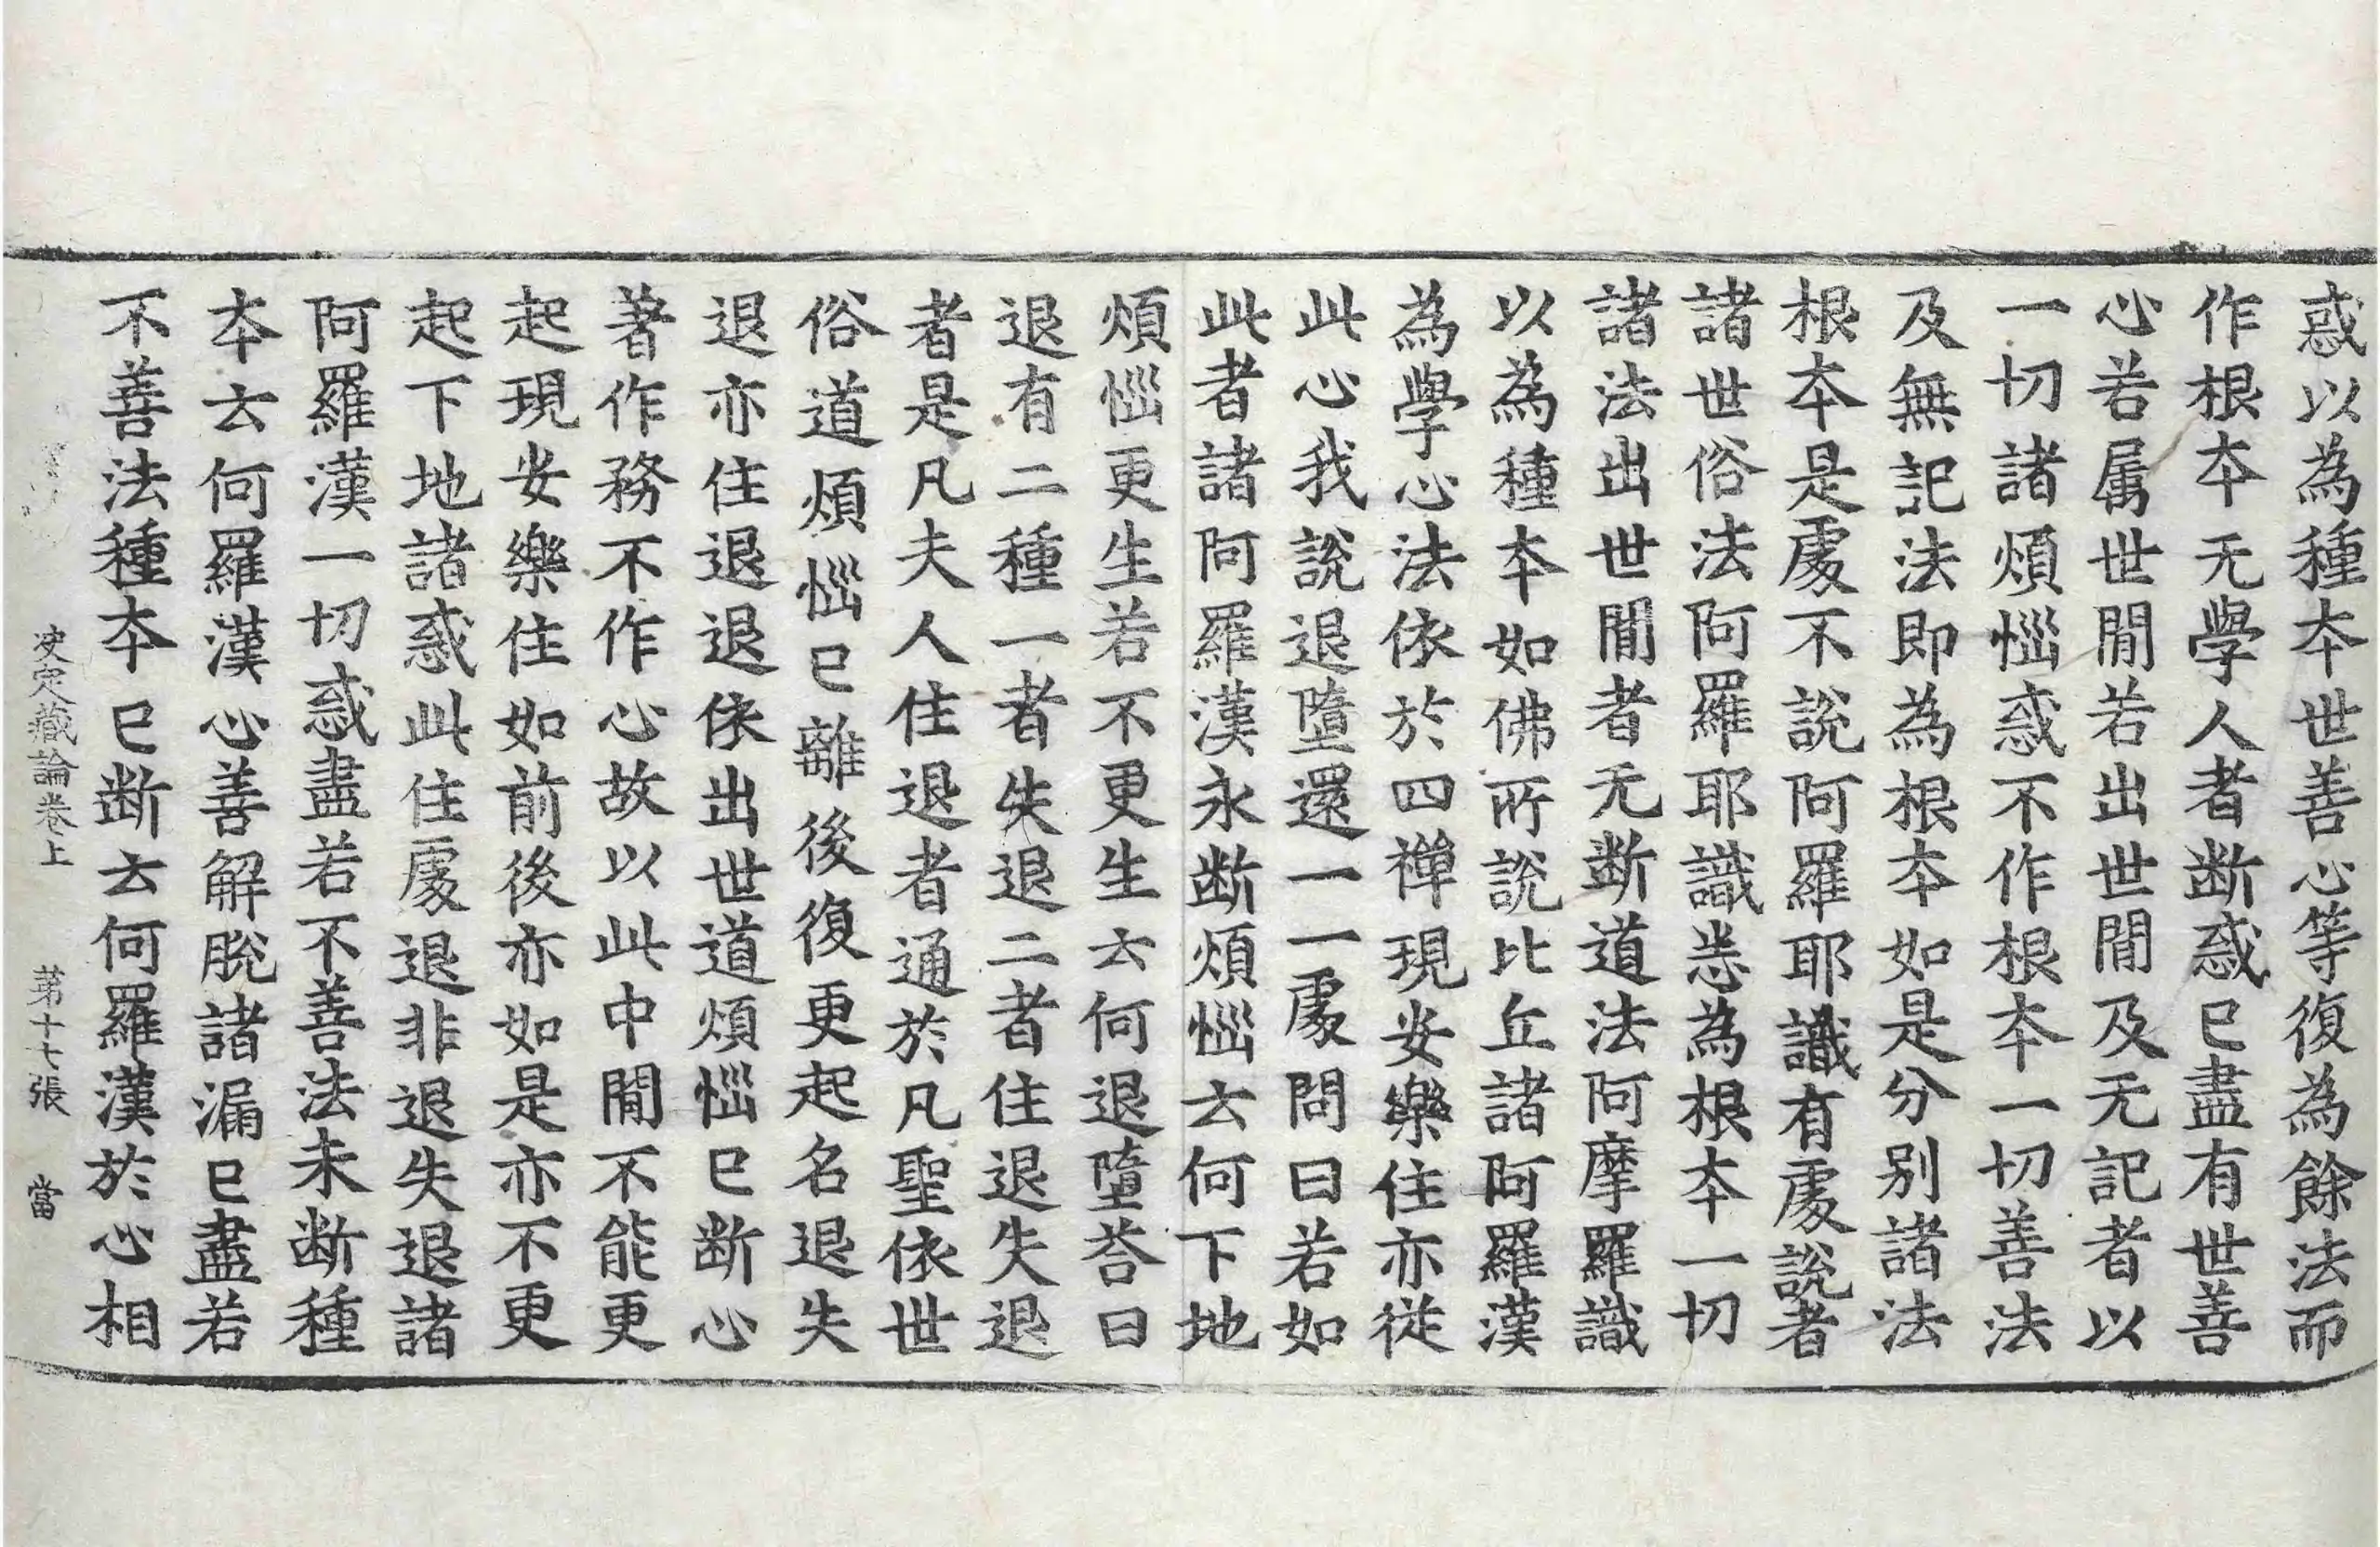 惑以為種夲世善心等復為餘法而
作根夲无學人者断惑已盡有世善
心若属世間若出世間及无記者以
一切諸煩惱惑不作根夲一切善法
及無記法即為根夲如是分别諸法
根夲是處不說阿羅耶識有處說者
諸世俗法阿羅耶識悉為根夲一切
諸法出世間者无断道法阿摩羅識
以為種夲如佛所說比丘諸阿羅漢
為學心法依於四禅現安樂住亦従
此心我說退墮還一一處問曰若如
此者諸阿羅漢永断煩惱云何下地
煩惱更生若不更生云何退墮荅曰
退有二種一者失退二者住退失退
者是凡夫人住退者通於凡聖依世
俗道煩惱已離後復更起名退失
退亦住退退依出世道煩惱已断心
著作務不作心故以此中間不能更
起現安樂住如前後亦如是亦不更
起下地諸惑此住處退非退失退諸
阿羅漢一切惑盡若不善法未断種
夲云何羅漢心善解脫諸漏已盡若
不善法種夲已断云何羅漢於心相
决定藏論卷上 苐十七張 當